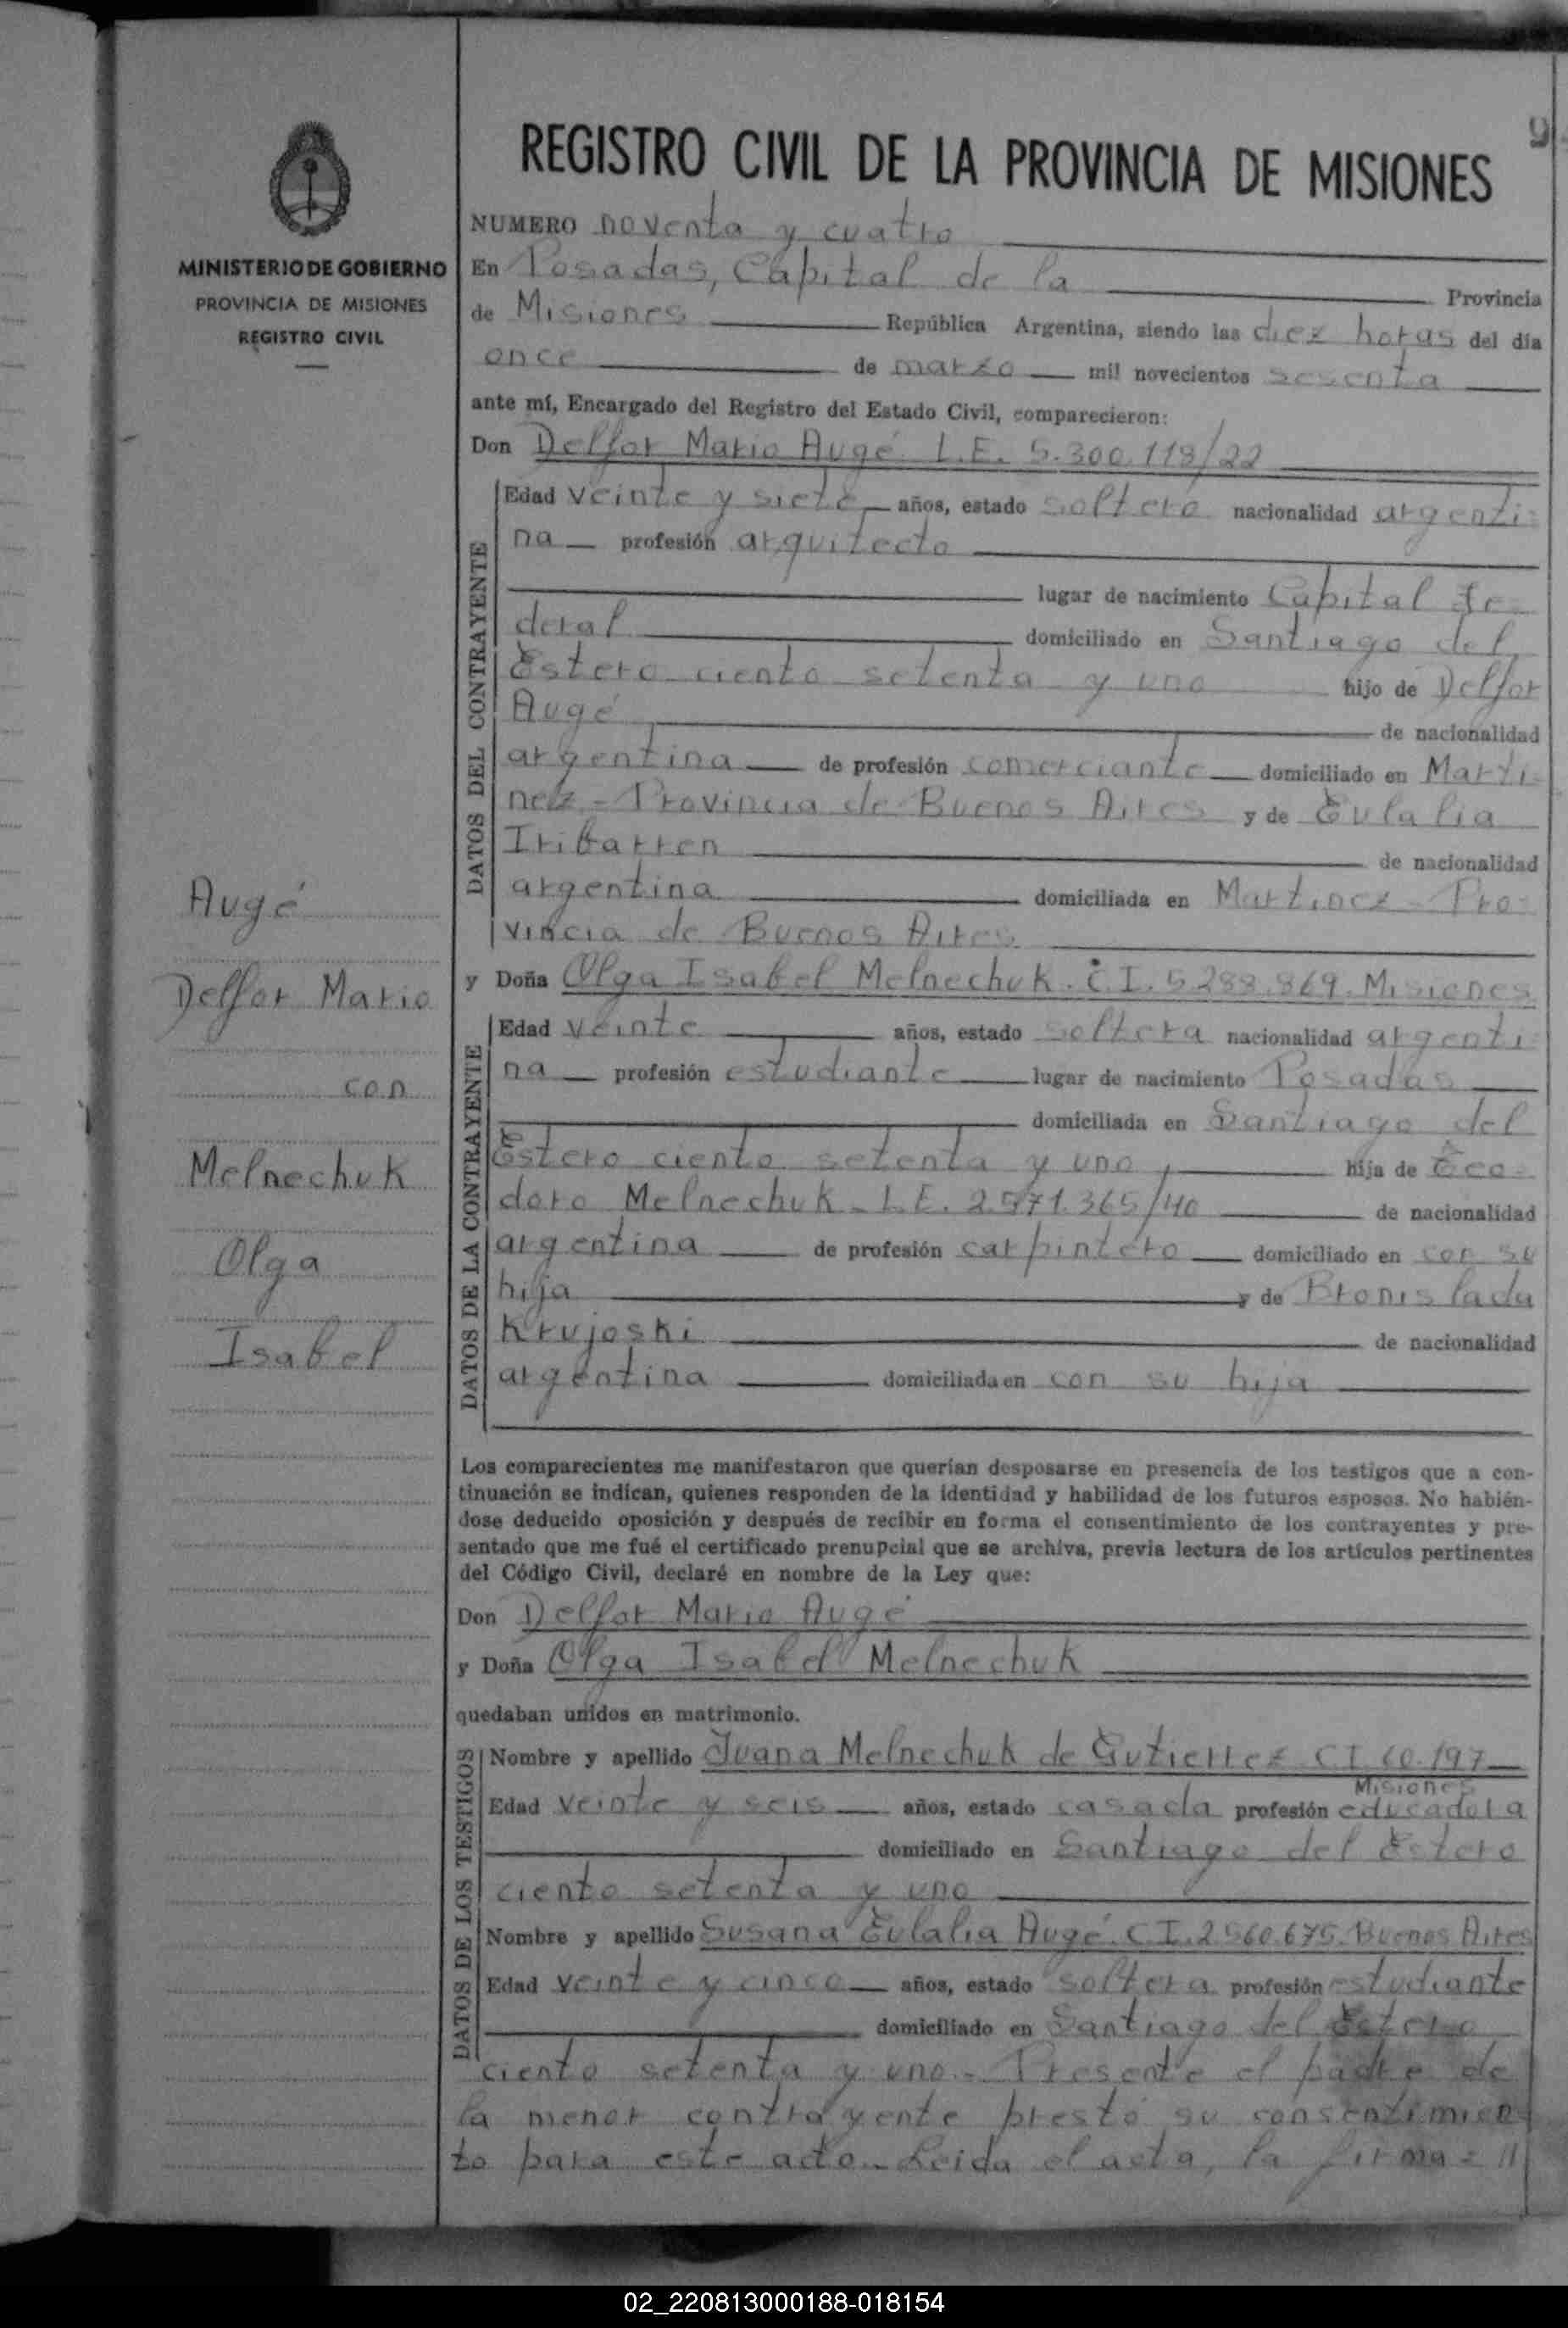 9
REGISTRO CIVIL DE LA PROVINCIA DE MISIONES
MINISTERIO DE GOBIERNO
PROVINCIA DE MISIONES
REGISTRO CIVIL
NUMERO noventa y cuatro
En Posadas, Capital de la Provincia
de Misiones República Argentina, siendo las diez horas del día
once de marzo mil novecientos sesenta
ante mí, Encargado del Registro del Estado Civil, comparecieron:
Don Delfor Mario Augé L.E. 5.300.118/22
DATOS DEL CONTRAYENTE
Edad veinte y siete años, estado soltero nacionalidad argenti-
na profesión arquitecto
lugar de nacimiento Capital Fe-
deral domiciliado en Santiago del
Estero ciento setenta y uno hijo de Delfor
Augé de nacionalidad
argentina de profesión comerciante domiciliado en Marti-
nez - Provincia de Buenos Aires y de Eulalia
Iribarren de nacionalidad
argentina domiciliada en Martinez - Pro-
vincia de Buenos Aires
y Doña Olga Isabel Melnechuk. C.I. 5.288.869. Misiones
DATOS DE LA CONTRAYENTE
Edad veinte años, estado soltera nacionalidad argenti-
na profesión estudiante lugar de nacimiento Posadas
domiciliada en Santiago del
Estero ciento setenta y uno, hija de Eco-
doro Melnechuk - L.E. 2.571.365/40 de nacionalidad
argentina de profesión carpintero domiciliado en con su
hija y de Bronislada
Krujoski de nacionalidad
argentina domiciliada en con su hija
Augé
Delfor Mario
con
Melnechuk
Olga
Isabel
Los comparecientes me manifestaron que querían desposarse en presencia de los testigos que a con-
tinuación se indican, quienes responden de la identidad y habilidad de los futuros esposos. No habién-
dose deducido oposición y después de recibir en forma el consentimiento de los contrayentes y pre-
sentado que me fué el certificado prenupcial que se archiva, previa lectura de los artículos pertinentes
del Código Civil, declaré en nombre de la Ley que:
Don Delfor Mario Augé
y Doña Olga Isabel Melnechuk
quedaban unidos en matrimonio.
DATOS DE LOS TESTIGOS
Nombre y apellido Juana Melnechuk de Gutierrez C.I. 60.197
Misiones
Edad veinte y seis años, estado casada profesión educadora
domiciliado en Santiago del Estero
ciento setenta y uno
Nombre y apellido Susana Eulalia Augé. C.I. 2.560.675. Buenos Aires
Edad veinte y cinco años, estado soltera profesión estudiante
domiciliado en Santiago del Estero
ciento setenta y uno.- Presente el padre de
la menor contrayente prestó su consentimien-
to para este acto.- Leida el acta, la firma= //
02_220813000188-018154